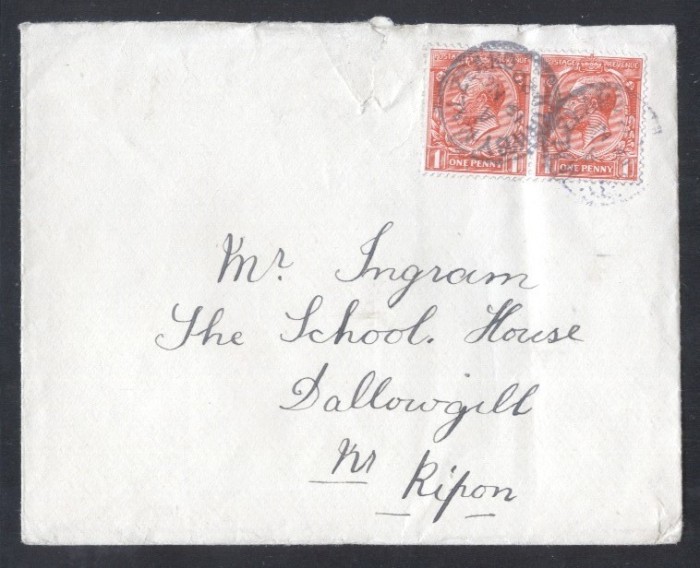 POSTAGE REVENUE
1 ONE PENNY 1
POSTAGE REVENUE
1 ONE PENNY 1
Mr. Ingram
The School. House
Dallowgill
Nr Ripon